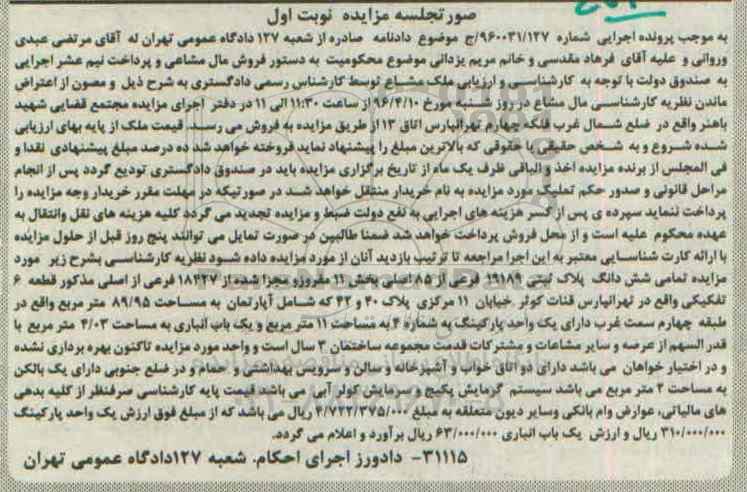 صورتجلسه مزایده نوبت اول
به موجب پرونده اجرایی شماره ۹۶۰۰۳۱/۱۲۷/ج موضوع دادنامه صادره از شعبه ۱۲۷ دادگاه عمومی تهران له آقای مرتضی عبدی
وروانی و علیه آقای فرهاد مقدسی و خانم مریم یزدانی موضوع محکومیت به دستور فروش مال مشاعی و پرداخت نیم عشر اجرایی
به صندوق دولت با توجه به کارشناسی و ارزیابی ملک مشاع توسط کارشناس رسمی دادگستری به شرح ذیل و مصون از اعتراض
ماندن نظریه کارشناسی مال مشاع در روز شنبه مورخ ۹۶/۴/۱۰ از ساعت ۱۱:۳۰ الی ۱۱ در دفتر اجرای مزایده مجتمع قضایی شهید
باهنر واقع در ضلع شمال غرب فلکه چهارم تهرانپارس اتاق ۱۳ از طریق مزایده به فروش می رسد. قیمت ملک از پایه بهای ارزیابی
شده شروع و به شخص حقیقی یا حقوقی که بالاترین مبلغ را پیشنهاد نماید فروخته خواهد شد ده درصد مبلغ پیشنهادی نقدا و
فی المجلس از برنده مزایده اخذ و الباقی ظرف یک ماه از تاریخ برگزاری مزایده باید در صندوق دادگستری تودیع گردد پس از انجام
مراحل قانونی و صدور حکم تملیک مورد مزایده به نام خریدار منتقل خواهد شد در صورتیکه در مهلت مقرر خریدار وجه مزایده را
پرداخت ننماید سپرده ی پس از کسر هزینه های اجرایی به نفع دولت ضبط و مزایده تجدید می گردد کلیه هزینه های نقل وانتقال به
عهده محکوم علیه است و از محل فروش پرداخت خواهد شد ضمنا طالبین در صورت تمایل می توانند پنج روز قبل از حلول مزایده
با ارائه کارت شناسایی معتبر به این اجرا مراجعه تا ترتیب بازدید آنان از مورد مزایده داده شود نظریه کارشناسی بشرح زیر مورد
مزایده تمامی شش دانگ پلاک ثبتی ۱۹۱۸۹ فرعی از ۸۵ اصلی بخش ۱۱ مفروزو مجزا شده از ۱۸۴۲۷ فرعی از اصلی مذکور قطعه ۶
تفکیکی واقع در تهرانپارس قنات کوثر خیابان ۱۱ مرکزی پلاک ۴۰ و ۴۲ که شامل آپارتمان به مساحت ۸۹/۹۵ متر مربع واقع در
طبقه چهارم سمت غرب دارای یک واحد پارکینگ به شماره ۴ به مساحت ۱۱ متر مربع و یک باب انباری به مساحت ۴/۰۳ متر مربع با
قدر السهم از عرصه و سایر مشاعات و مشترکات قدمت مجموعه ساختمان ۳ سال است و واحد مورد مزایده تاکنون بهره برداری نشده
و در اختیار خواهان می باشد دارای دو اتاق خواب و آشپزخانه و سالن و سرویس بهداشتی و حمام و در ضلع جنوبی دارای یک بالکن
به مساحت ۲ متر مربع می باشد سیستم گرمایش پکیج و سرمایش کولر آبی می باشد قیمت پایه کارشناسی صرفنظر از کلیه بدهی
های مالیاتی، عوارض وام بانکی وسایر دیون متعلقه به مبلغ ۴/۷۲۲/۳۷۵/۰۰۰ ریال می باشد که از مبلغ فوق ارزش یک واحد پارکینگ
۳۱۰/۰۰۰/۰۰۰ ریال و ارزش یک باب انباری ۶۳/۰۰۰/۰۰۰ ریال برآورد و اعلام می گردد.
۳۱۱۱۵- دادورز اجرای احکام. شعبه ۱۲۷دادگاه عمومی تهران